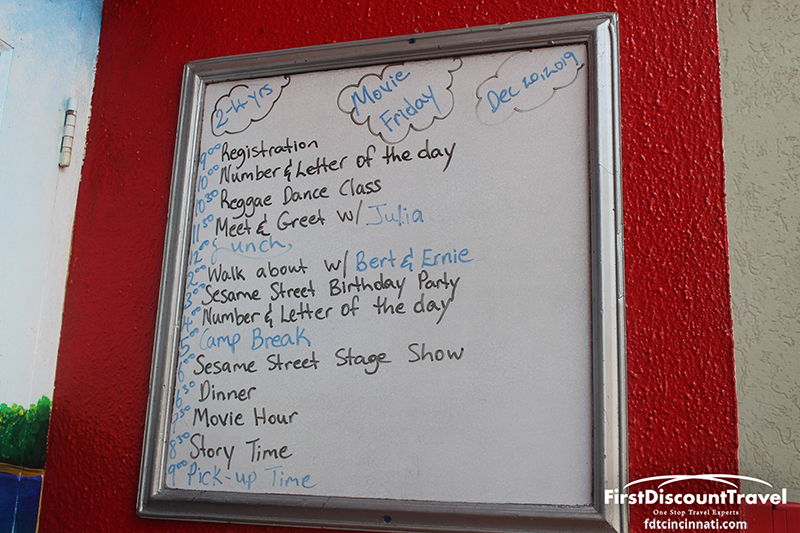 2-4 yrs
Movie Friday
Dec 20, 2019
9:00 Registration
10:00 Number & Letter of the day
10:30 Reggae Dance Class
11:50 Meet & Greet w/ Julia
12:00 Lunch
2:00 Walk about w/ Bert & Ernie
3:00 Sesame Street Birthday Party
4:00 Number & Letter of the day
5:00 Camp Break
6:00 Sesame Street Stage Show
6:30 Dinner
7:30 Movie Hour
8:30 Story Time
9:00 Pick-up Time
FirstDiscountTravel
One Stop Travel Experts
fdtcincinnati.com